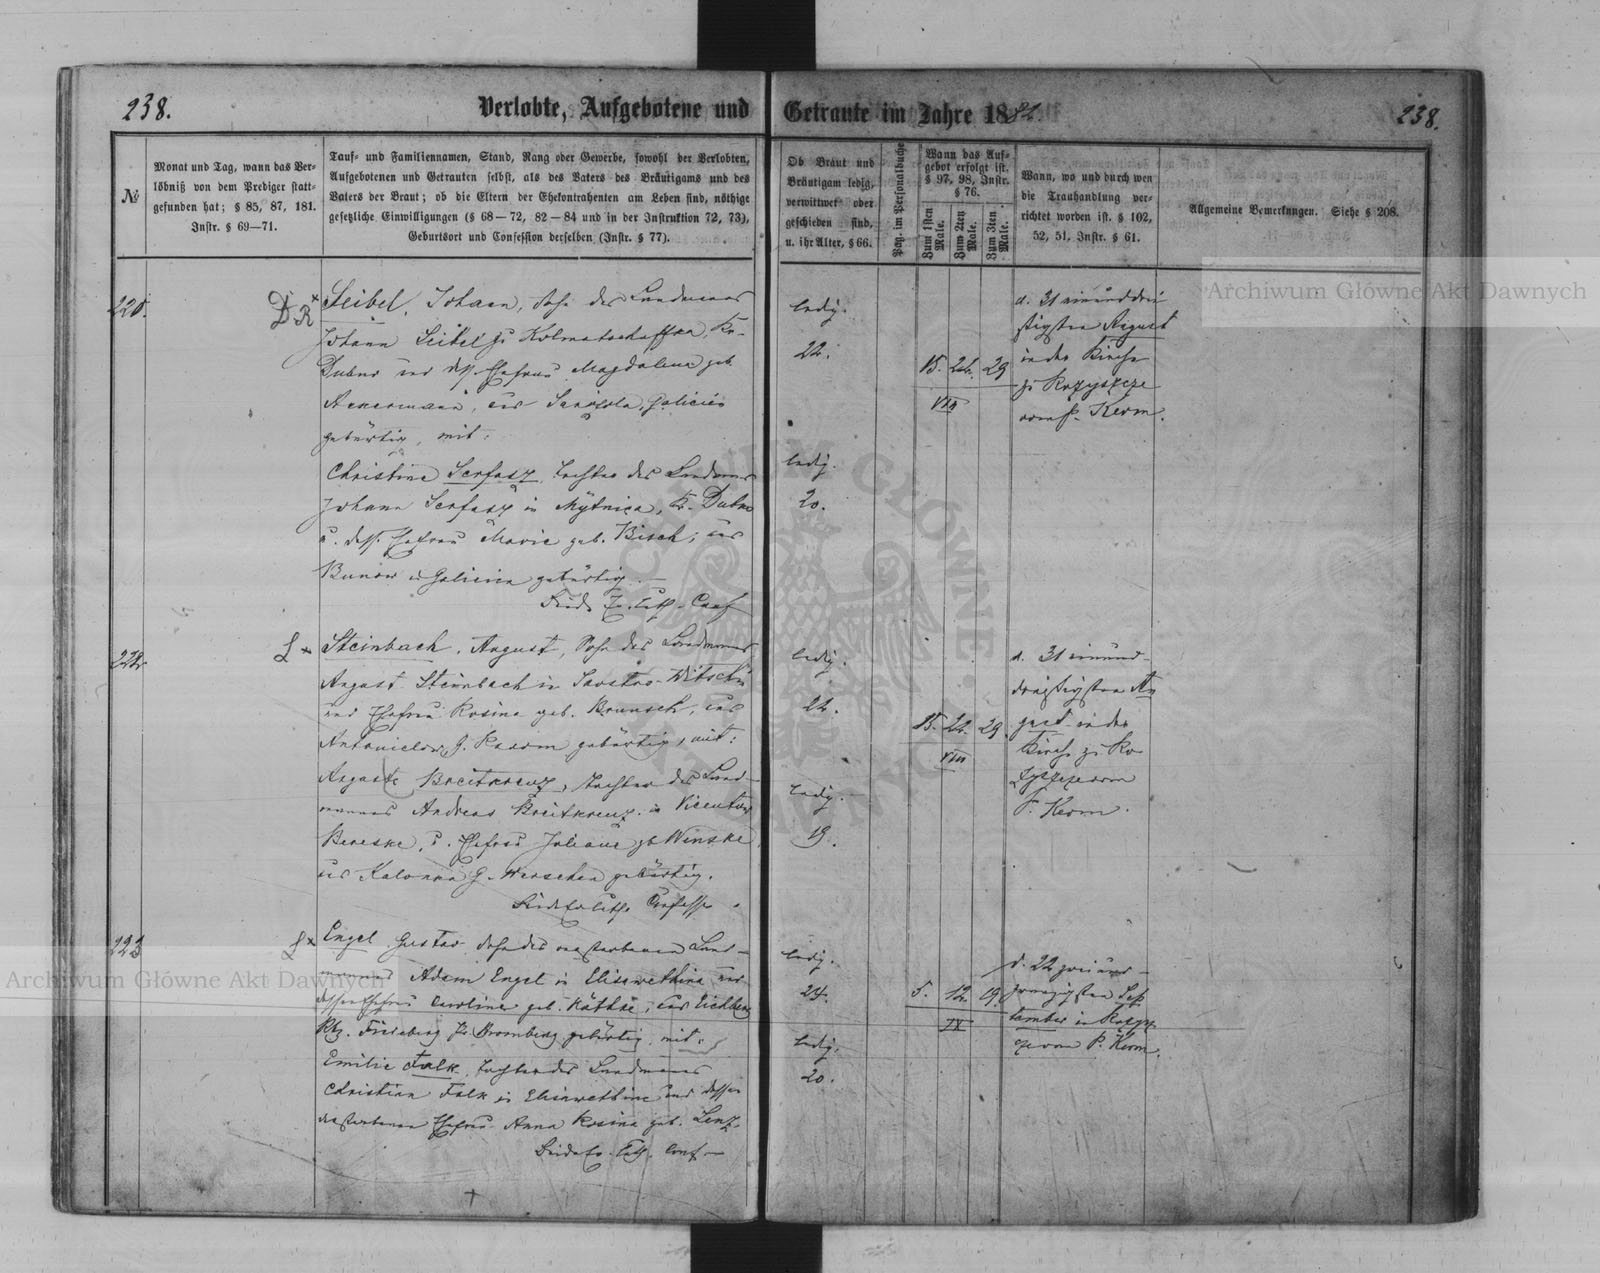 238.
Verlobte, Aufgebotene und Getraute im Jahre 1882.
238.
№
Monat und Tag, wann das Ver-
löbniß von dem Prediger statt-
gefunden hat; § 85, 87, 181.
Instr. § 69—71.
Tauf- und Familiennamen, Stand, Rang oder Gewerbe, sowohl der Verlobten,
Aufgebotenen und Getrauten selbst, als des Vaters des Bräutigams und des
Vaters der Braut; ob die Eltern der Ehekontrahenten am Leben sind, nöthige
gesetzliche Einwilligungen (§ 68—72, 82—84 und in der Instruktion 72, 73),
Geburtsort und Confession derselben (Instr. § 77).
Ob Braut und
Bräutigam ledig,
verwittwet oder
geschieden sind,
u. ihr Alter, § 66.
Pag. im Personalbuche
Wann das Auf-
gebot erfolgt ist.
§ 97, 98, Instr.
§ 76.
Zum 1sten Male.
Zum 2ten Male.
Zum 3ten Male.
Wann, wo und durch wen
die Trauhandlung ver-
richtet worden ist. § 102,
52, 51, Instr. § 61.
Allgemeine Bemerkungen. Siehe § 208.
D.R
Seibel, Johann, Sohn des Landmanns
Johann Seibel zu
Dubno und dess. Ehefrau Magdalena geb.
Ackermann, aus Galicien
gebürtig, mit:
Christine Serfasz, Tochter des Landmanns
Johann Serfasz in Mytnica, Kr. Dubno
u. dess. Ehefrau Marie geb. Bisch, aus
Bunow in Galicien gebürtig.
Beide Ev. Luth. Conf.
ledig.
22.
ledig.
20.
15. 22. 29
VIII
d. 31 einunddrei
ßigsten August
in der Kirche
zu Rozyszcze
vom P. Kerm.
222.
L
Steinbach, August, Sohn des Landmanns
August Steinbach in
und Ehefrau Rosina geb. Brunsch, aus
gebürtig, mit:
Auguste Breitkreuz, Tochter des Land-
mannes Andreas Breitkreuz in
u. Ehefrau Juliane gb Winske,
aus gebürtig.
Beide Ev Luth Confess.
ledig.
22.
ledig.
19.
15. 22. 29.
VIII
d. 31 einund-
dreißigsten Au
gust in der
Kirche zu Ro
zyszcze vom
P. Kerm.
223
L
Engel, Gustav, Sohn des verstorbenen Land-
mannes Adam Engel in Elisawethina und
dessen Ehefrau Caroline geb. Käthke, aus Eichberg
gebürtig, mit:
Emilie Falk, Tochter des Landmannes
Christian Falk in Elisawethina und dessen
verstorbenen Ehefrau Anna Rosina geb. Lenz.
Beide Ev. Luth. Conf.
ledig.
24.
ledig.
20.
5. 12. 19.
IX
d. 22 zweiund-
zwanzigsten Sep
tember in Rozysz
cze vom P. Kerm.
Archiwum Główne Akt Dawnych
Archiwum Główne Akt Dawnych